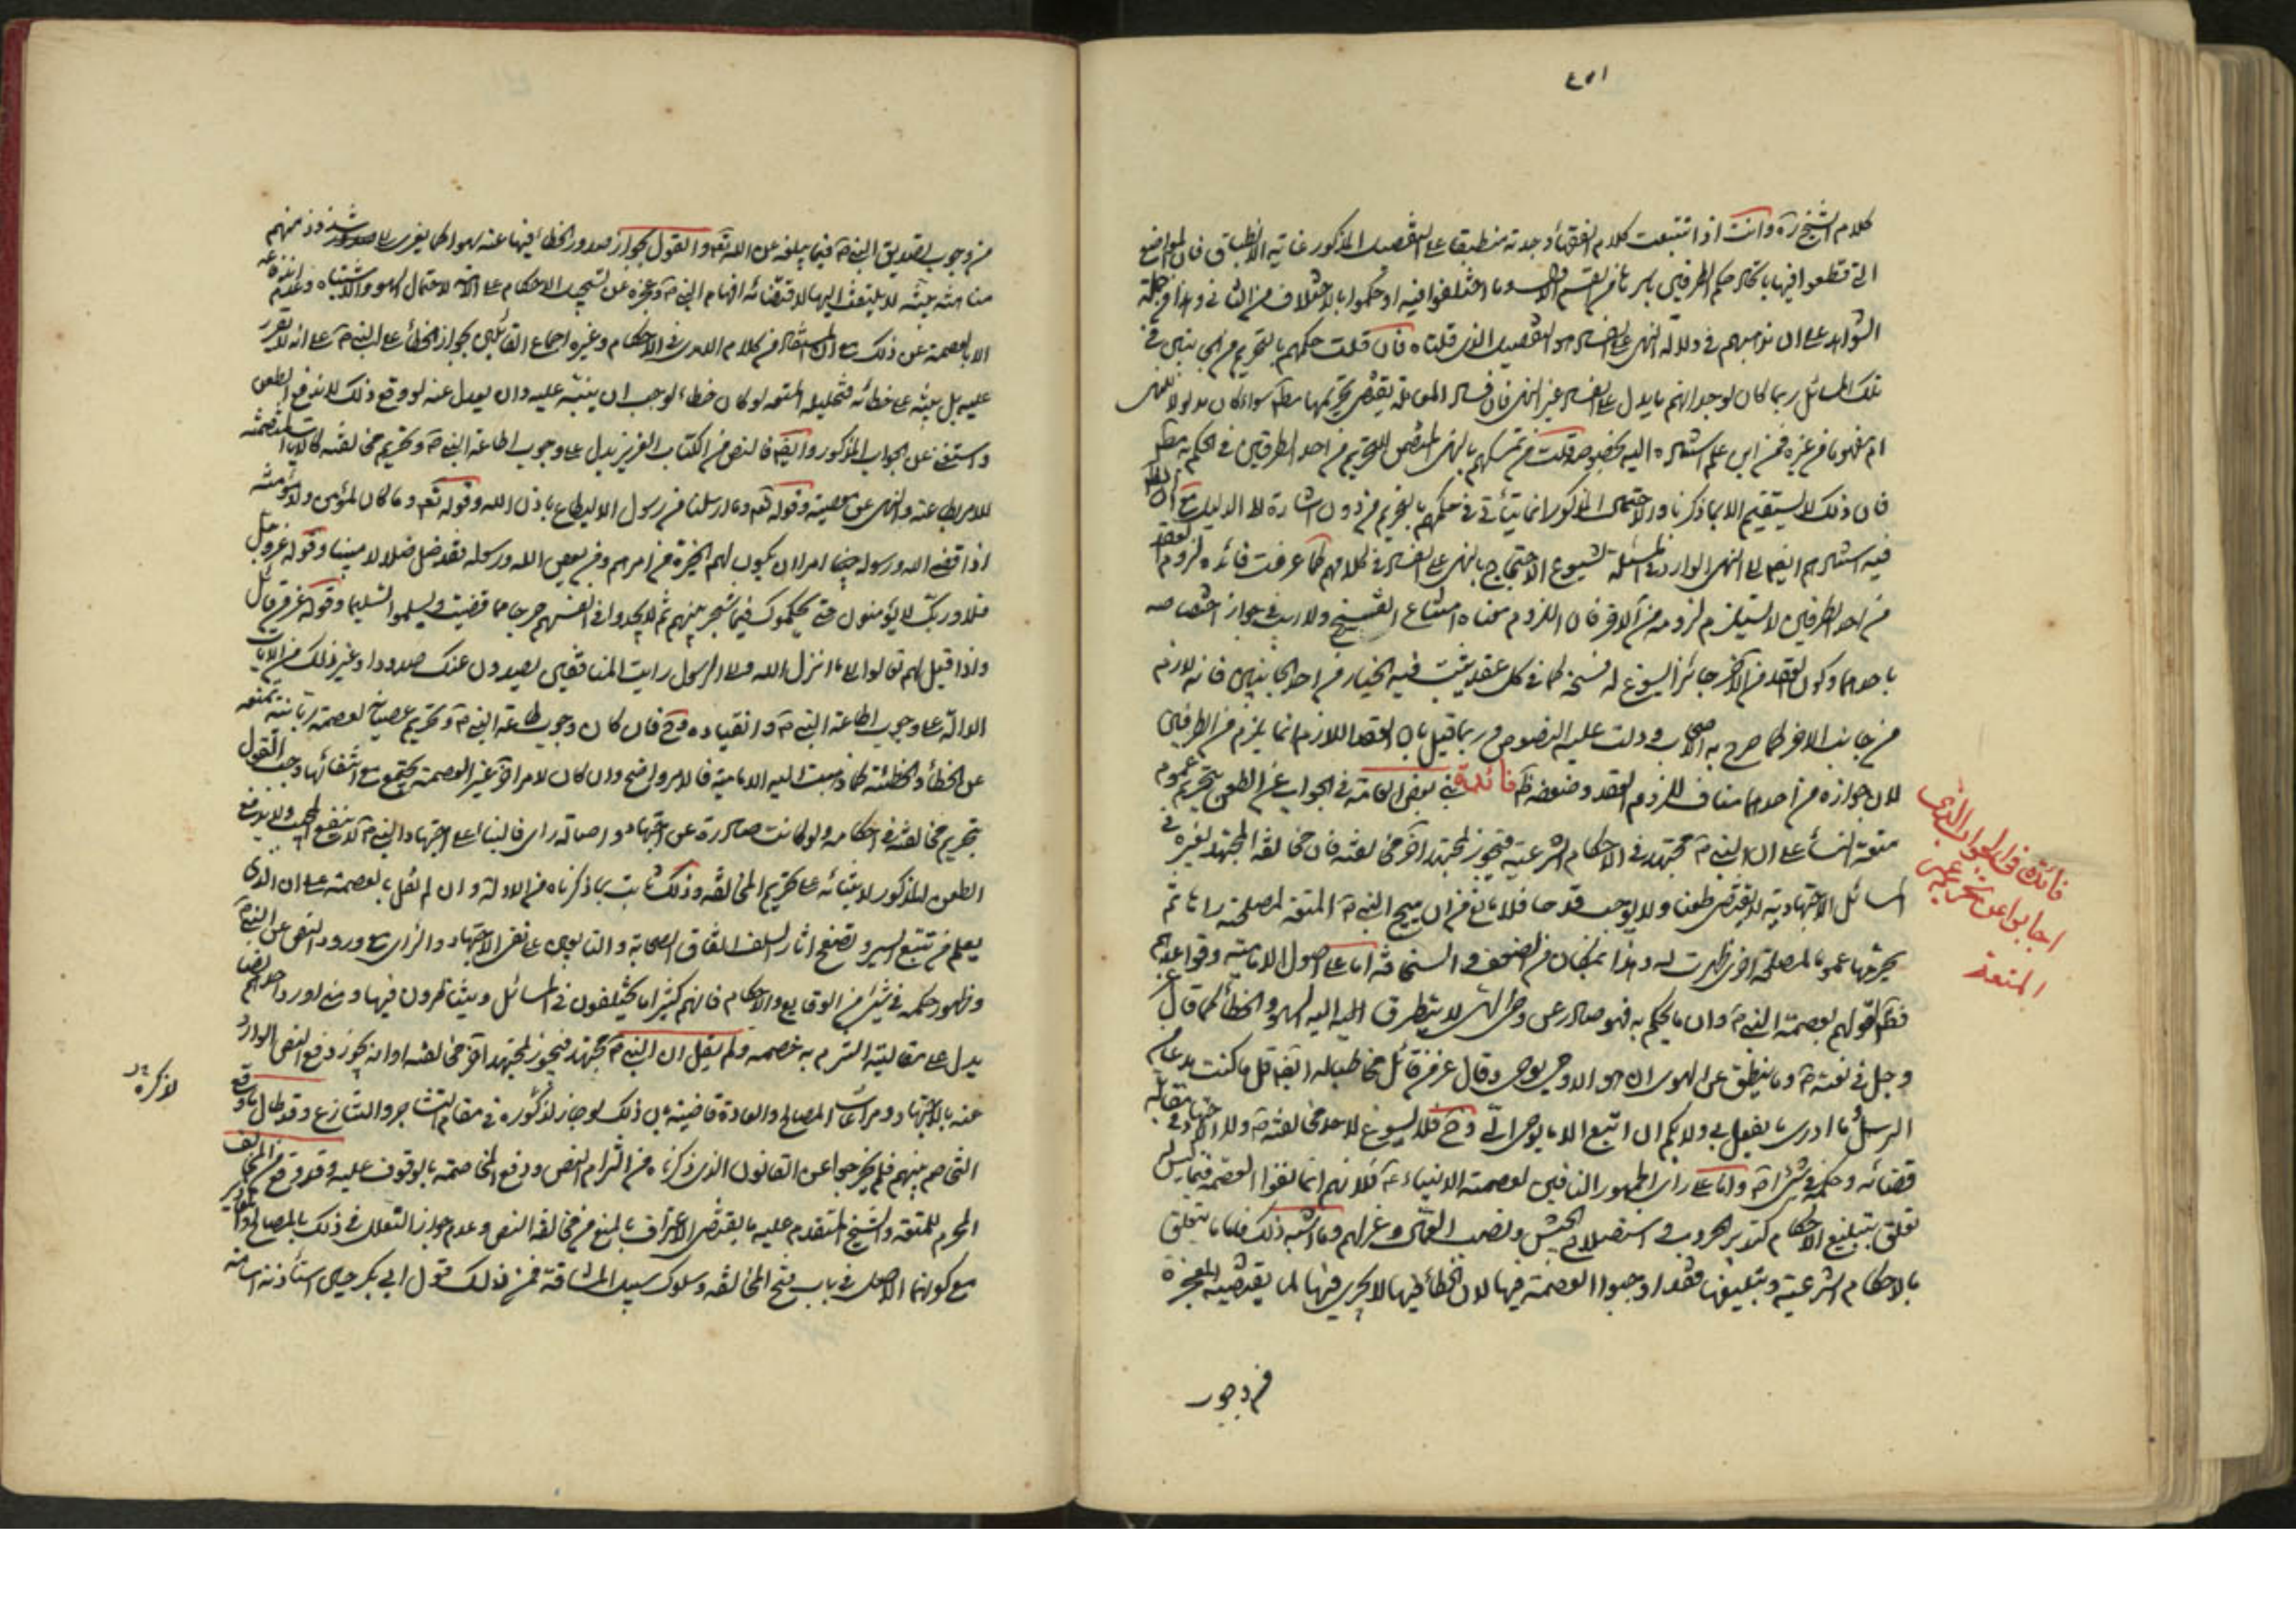 ٤٥١
كلام الشيخ ره وانت اذا تتبعت كلام الفقهاء وجدته منطبقا على التفصيل المذكور غاية الانطباق فان المواضع
التى قطعوا فيها باتحاد حكم الطرفين باسرها من القسم الاول وما اختلفوا فيه او حكموا بالاختلاف من الثانى وهذا من جملة
الشواهد على ان مذهبهم فى دلالة النهى على الفساد هو التفصيل الذى قلناه فان قلت حكمهم بالتحريم من الجانبين فى
تلك المسائل ربما كان لوجدانهم ما يدل على الفساد غير النهى فان فساد المعاملة يقتضى تحريمها مطلقا سواء كان مدلولا للنهى
ام مفهوما من غيره فمن اين علم استناده اليه بخصوصه قلت من تمسكهم بالنهى المتضمن للتحريم من احد الطرفين فى الحكم به مطلقا
فان ذلك لا يستقيم الا بما ذكرنا والاحتمال المذكور انما يتأتى فى حكمهم بالتحريم من دون اشارة الى الدليل مع ان الظاهر
فيه استنادهم ايضا الى النهى الوارد فى المسئلة لشيوع الاحتجاج بالنهى على الفساد فى كلامهم كما عرفت فائدة لزوم العقد
من احد الطرفين لا يستلزم لزومه من الاخر فان اللزوم معناه امتناع الفسخ ولا ريب فى جواز اختصاصه
باحدهما وكون العقد من الاخر جائزا ليسوغ له فسخه كما فى كل عقد يثبت فيه الخيار من احد الجانبين فانه لازم
من جانب الاخر كما صرح به الاصحاب ودلت عليه النصوص وربما قيل بان العقد اللازم انما يلزم من الطرفين
لان جوازه من احدهما مناف للزوم العقد وضعفه ظ فائدة بنى بعض العامة فى الجواب عن الطعن بتحريم عمر
متعة النساء على ان النبى ص مجتهد فى الاحكام الشرعية فيجوز لمجتهد اخر مخالفته فان مخالفة المجتهد لغيره فى
المسائل الاجتهادية لا يقتضى طعنا ولا يوجب قدحا فلا مانع من ان يبيح النبى ص المتعة لمصلحة راها ثم
يحرمها عمر لمصلحة اخرى ظهرت له وهذا بمكان من الضعف والسخافة اما على اصول الامامية وقواعدهم
فظ لقولهم بعصمة النبى ص وان ما يحكم به فهو صادر عن وحى الهى لا يتطرق اليه السهو والخطأ كما قال عز
وجل فى نعته ص وما ينطق عن الهوى ان هو الا وحى يوحى وقال عز من قائل مخاطبا له ايضا قل ما كنت بدعا من
الرسل وما ادرى ما يفعل بى ولا بكم ان اتبع الا ما يوحى الى وح فلا يسوغ لاحد مخالفته ص ولا الاجتهاد فى مقابلة
قضائه وحكمه فى شىء اصلا واما على راى الجمهور النافين لعصمة الانبياء ع فلانهم انما نفوا العصمة فيما ليس
تعلق بتبليغ الاحكام كتدبير الحروب واستصلاح الجيش ونصب العمال وعزلهم وما اشبه ذلك فاما ما يتعلق
بالاحكام الشرعية وتبليغها فقد اوجبوا العصمة فيها لان الخطأ فيها لا يجرى فيها لما يقتضيه المعجزة
من وجوب
فائدة فى الجواب الذى
اجابوا عن تحريم عمر
المتعة
من وجوب تصديق النبى ص فيما يبلغه عن الله تعالى والقول بجواز صدور الخطأ فيها عنه سهوا كما يعزى الى شذوذ منهم
مناقشة بينة لا يلتفت اليها لاقتضائه افهام النبى ص وعجزه عن تسجيل الاحكام على الامة لاحتمال السهو والاشتباه وعدم
الا بالعصمة عن ذلك مع ان المستفاد من كلام الامدى فى الاحكام وغيره اجماع القائلين بجواز الخطأ على النبى ص على انه لا يقرر
عليه بل ينبه على خطائه فتحليله المتعة لو كان خطاء لوجب ان ينبه عليه وان يعدل عنه لو وقع ذلك لاندفع الطعن
واستغنى عن الجواب المذكور وايضا فالنص من الكتاب العزيز يدل على وجوب اطاعة النبى ص وتحريم مخالفته كالايات المتضمنة
للامر بطاعته والنهى عن معصيته وقوله تعالى وما ارسلنا من رسول الا ليطاع باذن الله وقوله تعالى وما كان لمؤمن ولا مؤمنة
اذا قضى الله ورسوله امرا ان يكون لهم الخيرة من امرهم ومن يعص الله ورسوله فقد ضل ضلالا مبينا وقوله عز وجل
فلا وربك لا يؤمنون حتى يحكموك فيما شجر بينهم ثم لا يجدوا فى انفسهم حرجا مما قضيت ويسلموا تسليما وقوله عز من قائل
واذا قيل لهم تعالوا الى ما انزل الله والى الرسول رايت المنافقين يصدون عنك صدودا وغير ذلك من الايات
الدالة على وجوب اطاعة النبى ص وانقياده وح فان كان وجوب طاعة النبى ص وتحريم عصيانه لعصمة ربانية تمنعه
عن الخطأ والخطيئة كما ذهبت اليه الامامية فالامر واضح وان كان لامر اخر غير العصمة يجتمع مع انتفائها وجب القول
بتحريم مخالفته فى احكامه ولو كانت صادرة عن اجتهاد واصالة راى فالبناء على اجتهاد النبى ص لا ينفع المجيب ولا يدفع
الطعن المذكور لابتنائه على تحريم المخالفة وذلك ثابت بما ذكرناه من الادلة وان لم نقل بالعصمة على ان الذى
يعلم من تتبع السير وتصفح اثار السلف اتفاق الصحابة والتابعين على نفى الاجتهاد والراى مع ورود النص عن النبى ص
وظهور حكمه فى شىء من الوقايع والاحكام فانهم كثيرا ما يختلفون فى المسائل ويتناظرون فيها ومع لو رد احدهم نصا
يدل على مقالته التزم به خصمه ولم يقل ان النبى ص مجتهد فيجوز لمجتهد اخر مخالفته او انه يجوز دفع النص الوارد
عنه بالاجتهاد ومراعات المصالح والعادة قاضية بان ذلك لو جاز لذكروه فى مقام التشاجر والتنازع وقد طال ما وقع
التخاصم بينهم فلم يخرجوا عن القانون الذى ذكرناه من التزام النص ودفع المخاصمة بالوقوف عليه وقد وقع من المخالف
المحرم للمتعة والشيخ المتقدم عليه ما يقتضى الاعتراف بالمنع من مخالفة النص وعدم جواز التعلل فى ذلك بالمصالح والمعاذير
مع كونهما الاصل فى باب فتح المخالفة وسلوك سبيل المشاقة فمن ذلك قول ابى بكر حين استأذنه اسامة
لذكره